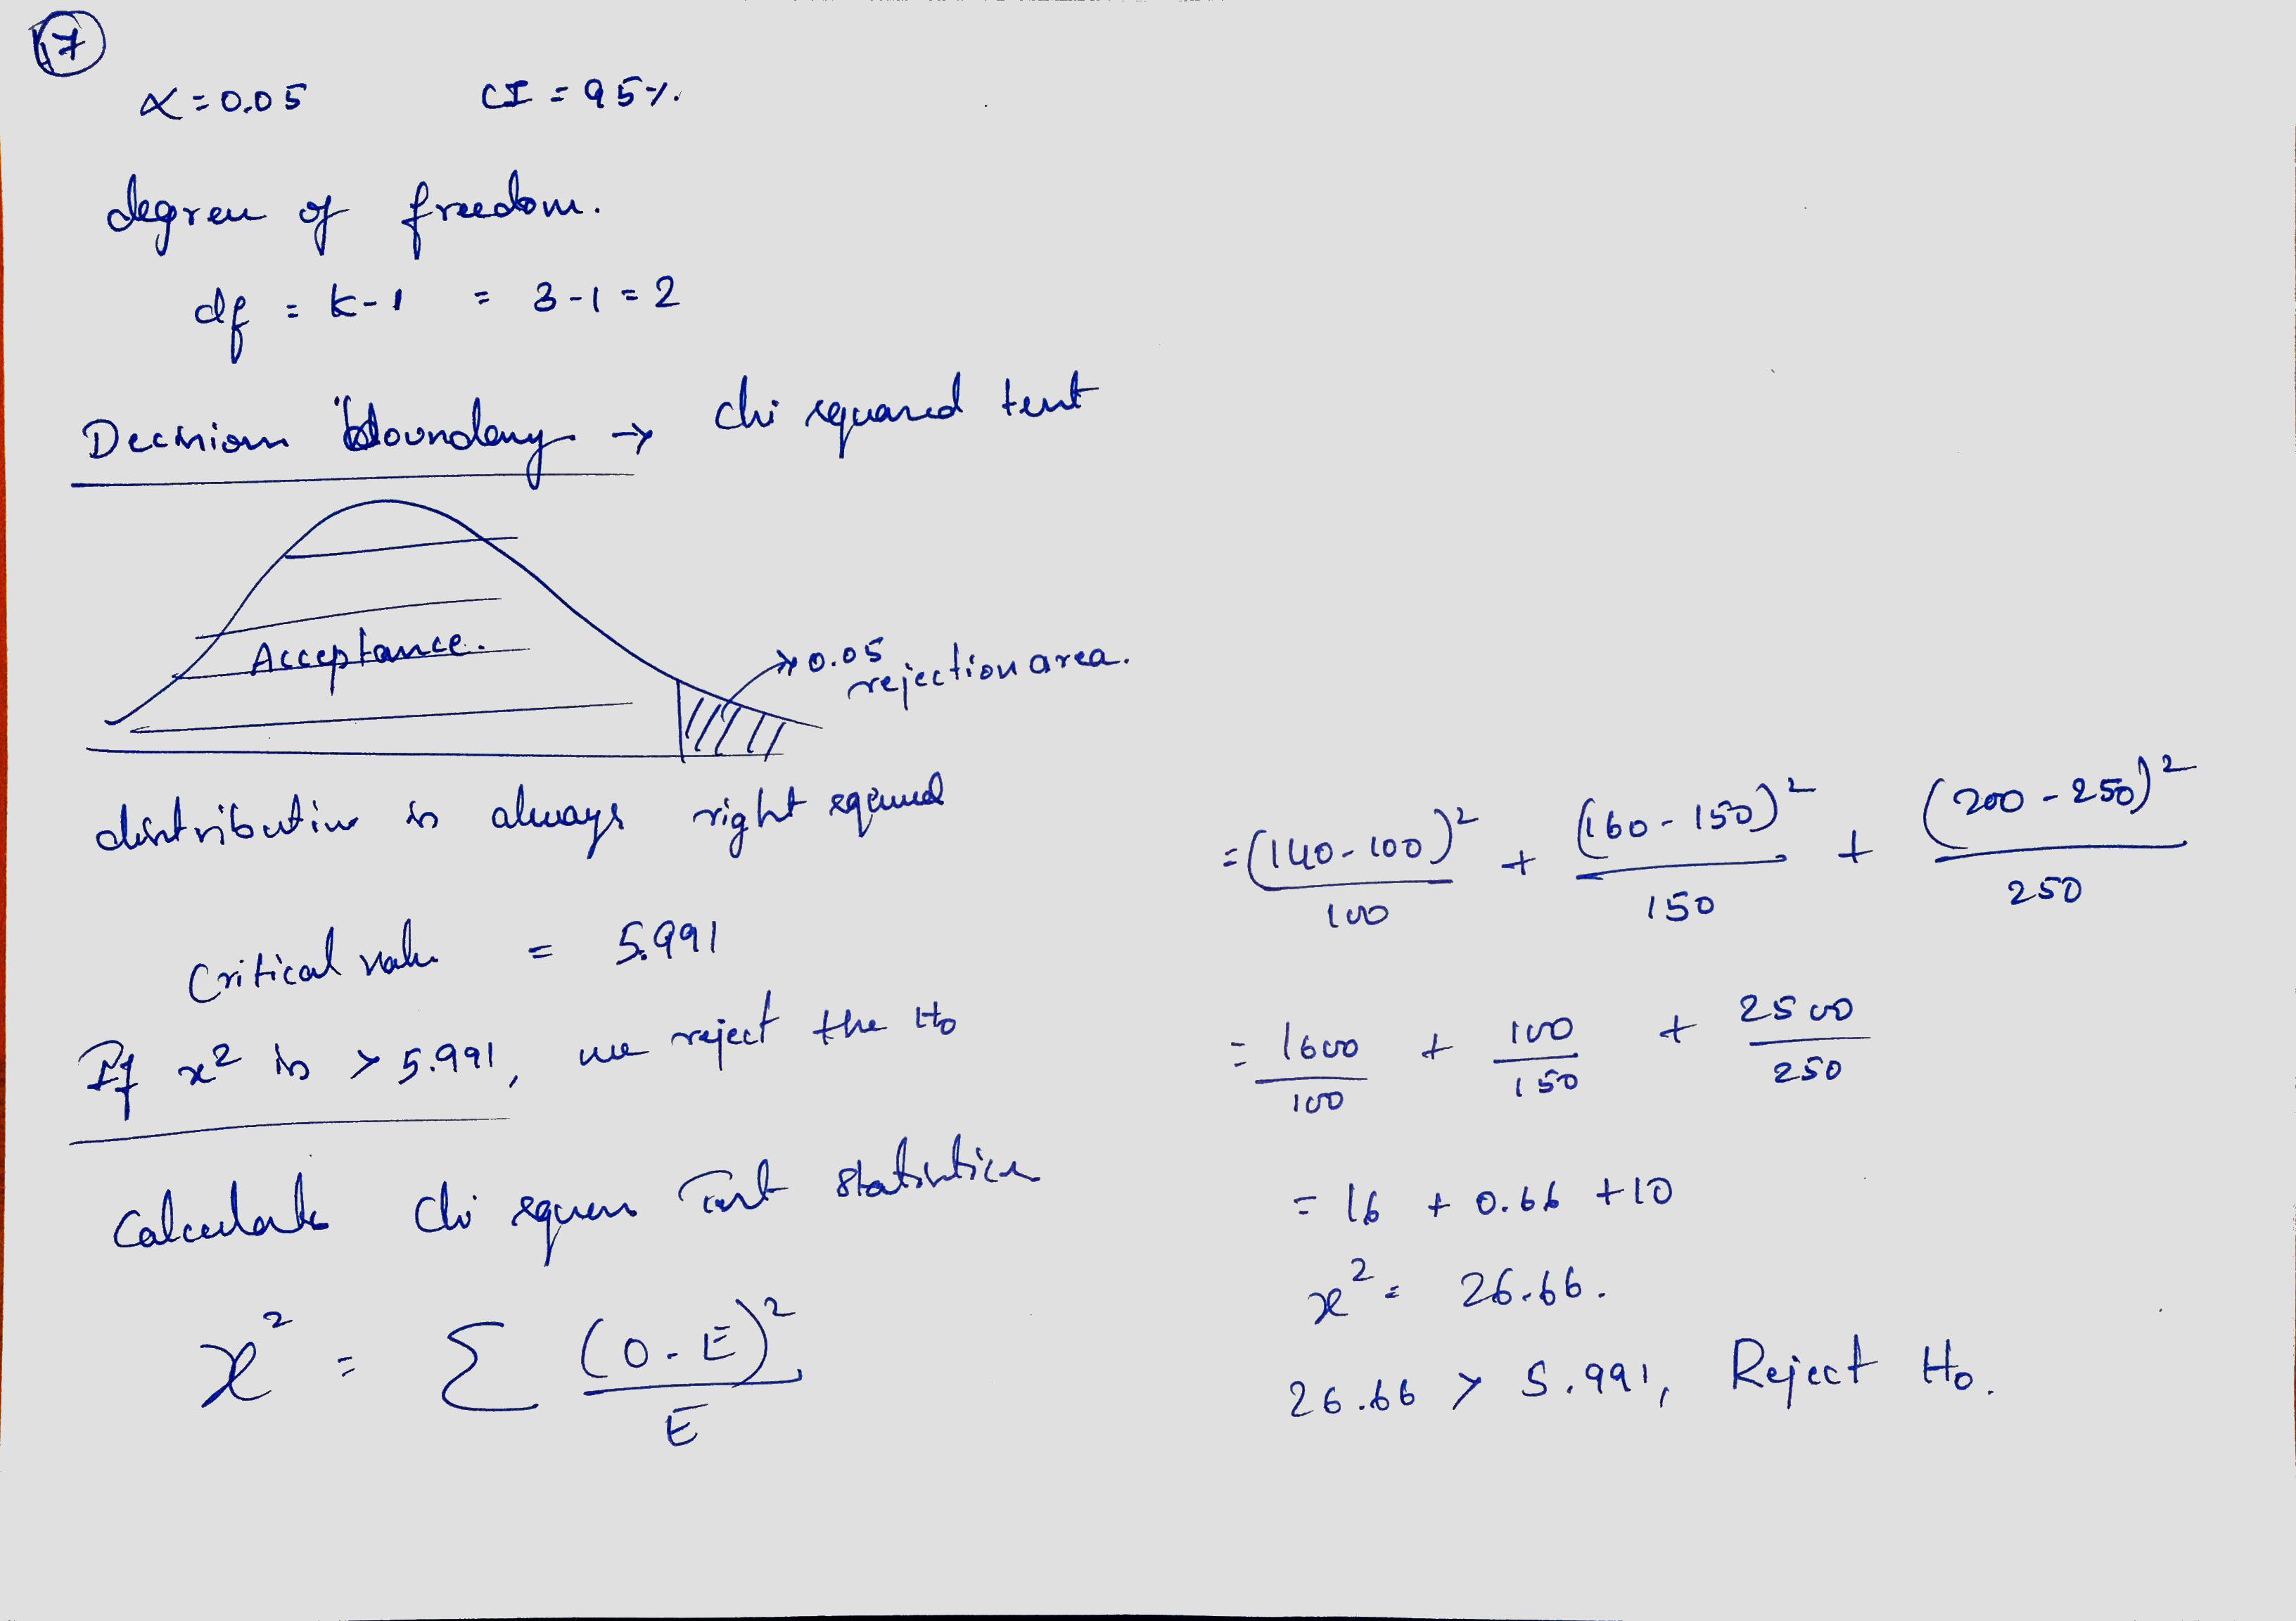 17
α = 0.05 CI = 95%.
degree of freedom.
df = k-1 = 3-1 = 2
Decision boundary → chi squared test
Acceptance.
0.05
rejection area.
distribution is always right
Critical value = 5.991
If x² is > 5.991, we reject the H₀
Calculate chi square Test statistics
x² = Σ (O-E)² / E
= (140-100)² / 100 + (160-150)² / 150 + (200-250)² / 250
= 1600/100 + 100/150 + 2500/250
= 16 + 0.66 + 10
x² = 26.66.
26.66 > 5.991, Reject H₀.